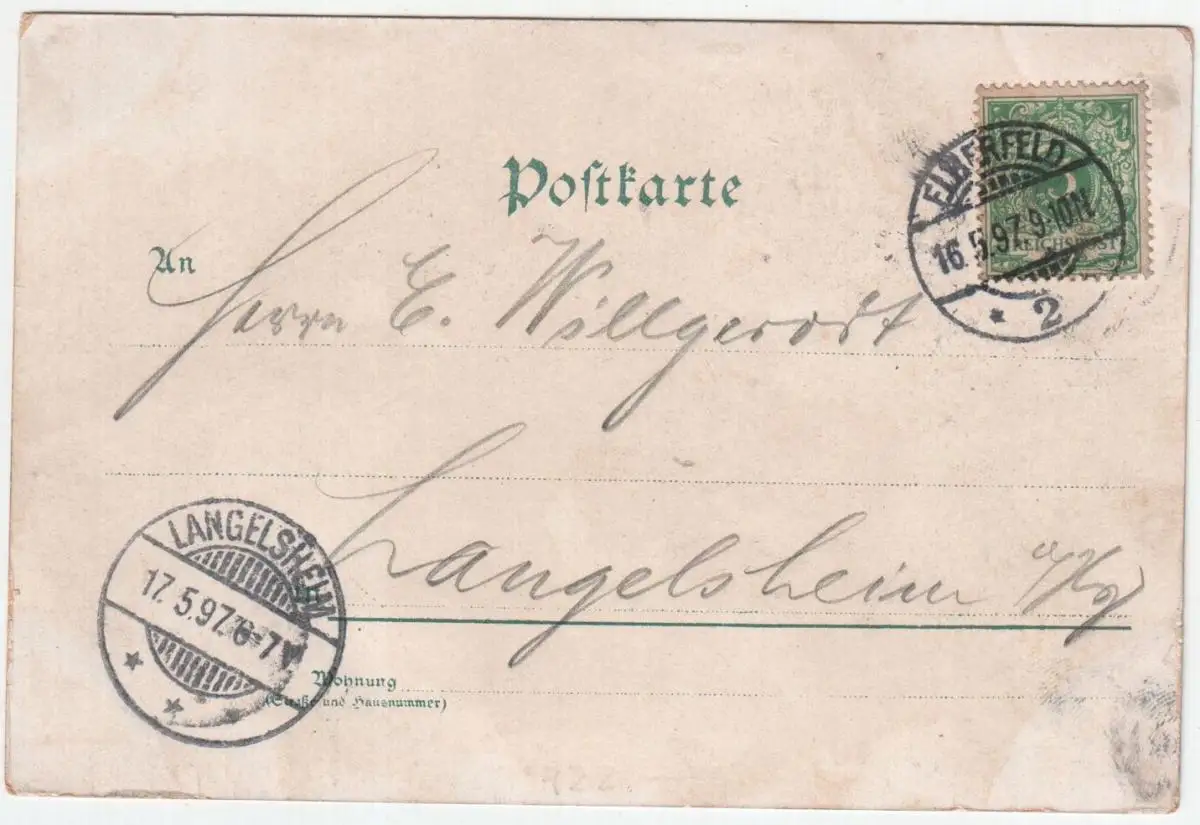 Postkarte
ELBERFELD
16.5.97.9-10N.
* 2
5
REICHSPOST
An
Herrn E. Willgerodt
Langelsheim a/Hz
LANGELSHEIM
17.5.97.6-7V
Wohnung
(Straße und Hausnummer)